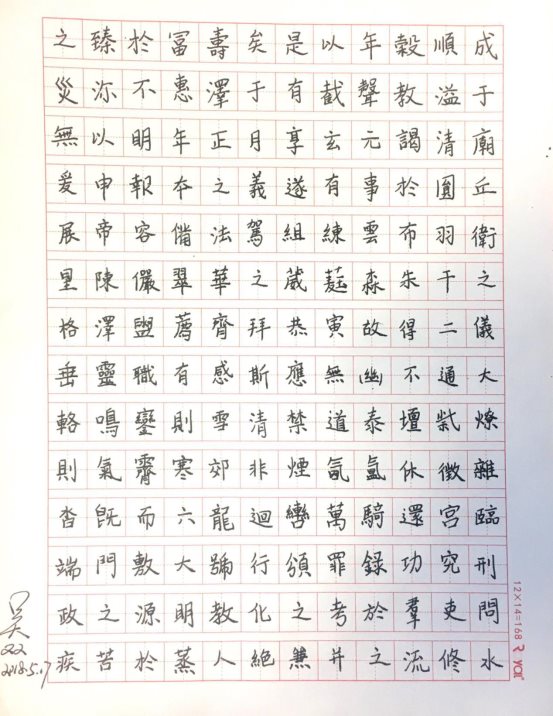 之臻於冨壽矣是以年穀順成
災沵不惠澤于有截聲教溢于
無以明年正月享玄元謁清廟
爰申報夲之義遂有事於圓丘
展帝容備法駕組練雲布羽衛
星陳儼翠華之葳蕤森朱干之
格澤盥薦齊拜恭寅故得二儀
垂靈職有感斯應無幽不通大
輅鳴鑾則雪清禁道泰壇祡燎
則氣霽寒郊非煙氤氳休徵雜
沓既而六龍迴轡萬騎還宮臨
端門敷大號行頒罪錄功究刑
政之源明教化之考於羣吏問
疾苦於蒸人絕兼并之流修水
2018.5.17
12×14=168